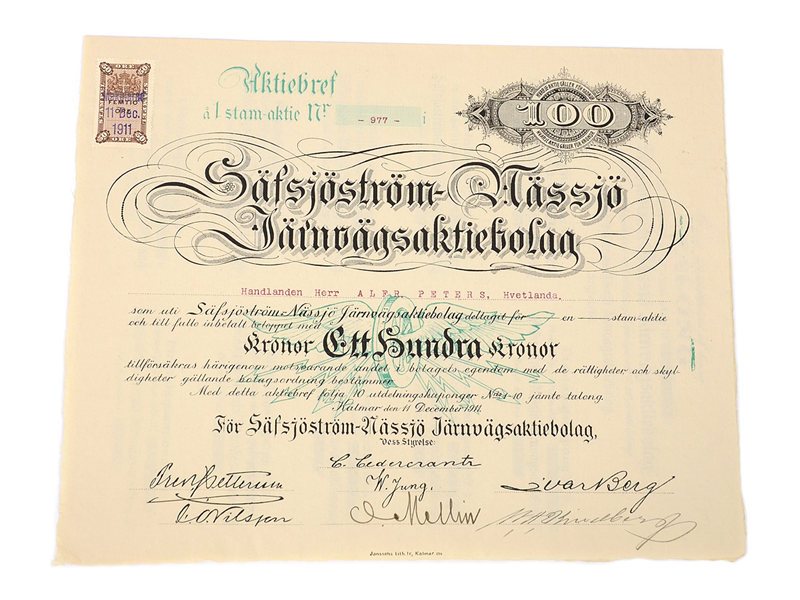 Aktiebref
å 1 stam-aktie Nr - 977 -
100
ÖRE
FEMTIO
11 DEC.
1911
Säfsjöström-Nässjö
Järnvägsaktiebolag
Handlanden Herr ALFR. PETERS, Hvetlanda.
som uti Säfsjöström-Nässjö Järnvägsaktiebolag deltaget för en stam-aktie
och till fullo inbetalt beloppet med
Kronor Ett Hundra Kronor
tillförsäkras härigenom motsvarande andel i bolagets egendom med de rättigheter och skyl-
digheter gällande bolagsordning bestämmer.
Med detta aktiebref följa 10 utdelningskuponger No 1-10 jämte talong.
Kalmar den 11 December 1911.
För Säfsjöström-Nässjö Järnvägsaktiebolag,
Dess Styrelse:
C. Cedercrantz
W. Jung.
Ivar Berg
C. O. Nilsson
O. Mellin
Janssons Lith. Kalmar